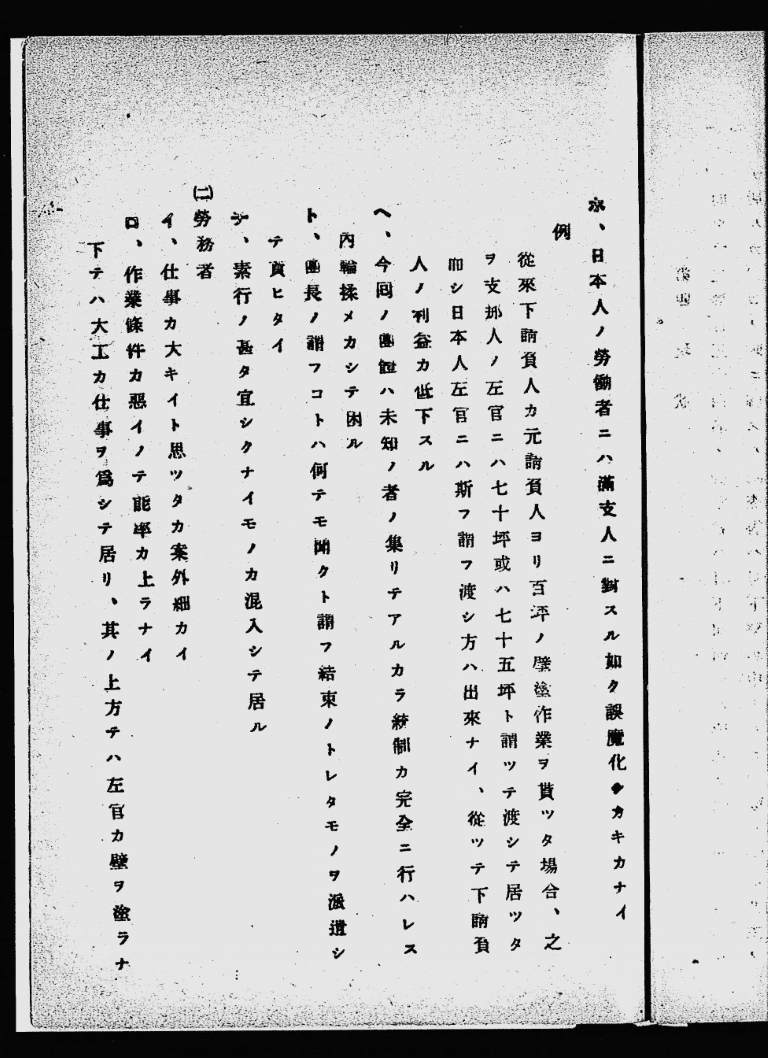 ホ、日本人ノ勞働者ニハ滿支人ニ對スル如ク誤魔化シカキカナイ
例
從來下請負人カ元請負人ヨリ百坪ノ壁塗作業ヲ貰ツタ場合、之
ヲ支那人ノ左官ニハ七十坪或ハ七十五坪ト謂ツテ渡シテ居ツタ
而シ日本人左官ニハ斯フ謂フ渡シ方ハ出來ナイ、從ツテ下請負
人ノ利益カ低下スル
ヘ、今回ノ團體ハ未知ノ者ノ集リテアルカラ統制カ完全ニ行ハレス
內輪揉メカシテ困ル
ト、團長ノ謂フコトハ何テモ聞クト謂フ結束ノトレタモノヲ派遣シ
テ貰ヒタイ
チ、素行ノ甚タ宜シクナイモノカ混入シテ居ル
㈡勞務者
イ、仕事カ大キイト思ツタカ案外細カイ
ロ、作業條件カ惡イノテ能率カ上ラナイ
下テハ大工カ仕事ヲ爲シテ居リ、其ノ上方テハ左官カ壁ヲ塗ラナ